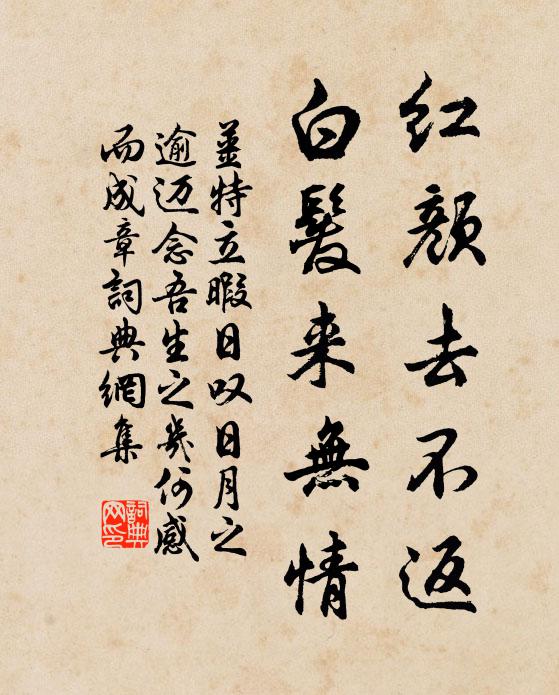 红颜去不返
白髮来無情
姜特立暇日叹日月之
逾迈念吾生之幾何感
而成章詞典網集
詞典
网印